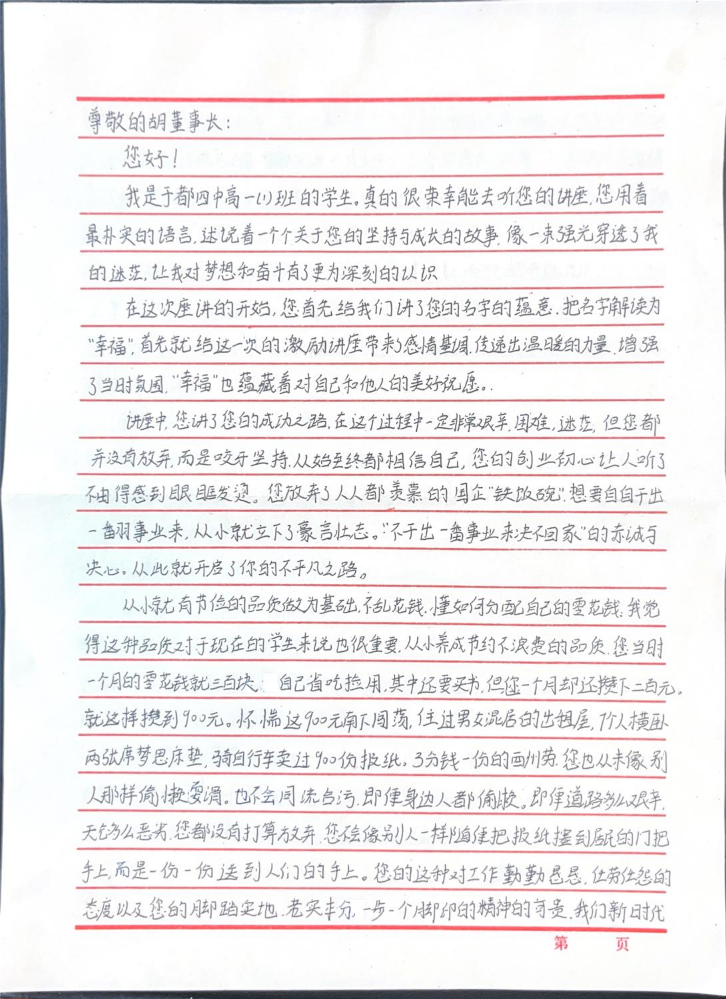 尊敬的胡董事长：
您好！
我是于都四中高一(1)班的学生。真的很荣幸能去听您的讲座,您用着
最朴实的语言,述说着一个个关于您的坚持与成长的故事,像一束强光穿透了我
的迷茫,让我对梦想和奋斗有了更为深刻的认识
在这次座讲的开始,您首先给我们讲了您的名字的蕴意.把名字解读为
"幸福",首先就给这一次的激励讲座带来了感情基调,传递出温暖的力量,增强
了当时氛围,"幸福"也蕴藏着对自己和他人的美好祝愿。
讲座中,您讲了您的成功之路,在这个过程中一定非常艰辛,困难,迷茫,但您都
并没有放弃,而是咬牙坚持,从始至终都相信自己,您的创业初心让人听了
不由得感到眼眶发烫。您放弃了人人都羡慕的国企"铁饭碗",想要自自干出
一翻事业来,从小就立下了豪言壮志。"不干出一番事业来决不回家"的赤诚与
决心。从此就开启了你的不平凡之路。
从小就有节俭的品质做为基础,不乱花钱,懂如何分配自己的零花钱,我觉
得这种品质对于现在的学生来说也很重要,从小养成节约不浪费的品质,您当时
一个月的零花钱就三百块,自己省吃捡用,其中还要买书,但您一个月却还攒下二百元,
就这样攒到900元。怀惴这900元南下闯荡,住过男女混居的出租屋,个人横卧
两张席梦思床垫,骑自行车卖过900份报纸,3分钱一份的酬劳,您也从未像别
人那样偷懒耍滑。也不会同流合污,即便身边人都偷懒。即便道路多么艰辛,
天气多么恶劣,您都没有打算放弃,您不会像别人一样随便把报纸摆到居民的门把
手上,而是一份一份送到人们的手上。您的这种对工作勤勤恳恳,任劳任怨的
态度以及您的脚踏实地,老实本分,一步一个脚印的精神的可贵,我们新时代
第 页